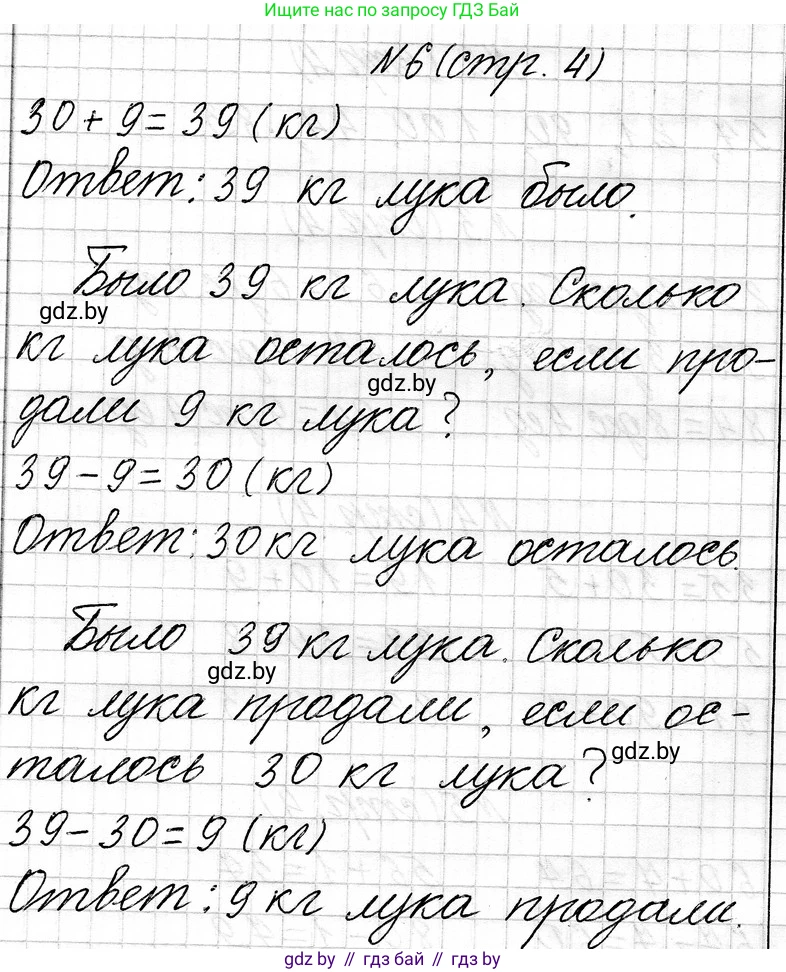 Ищите нас по запросу ГДЗ Бай
№6 (стр. 4)
30 + 9 = 39 (кг)
Ответ: 39 кг лука было.
Было 39 кг лука. Сколько
gdz.by
кг лука осталось, если про-
gdz.by
дали 9 кг лука?
39 - 9 = 30 (кг)
Ответ: 30 кг лука осталось.
Было 39 кг лука. Сколько
gdz.by
кг лука продали, если ос-
gdz.by
талось 30 кг лука?
39 - 30 = 9 (кг)
Ответ: 9 кг лука продали.
gdz.by // гдз бай // gdz.by